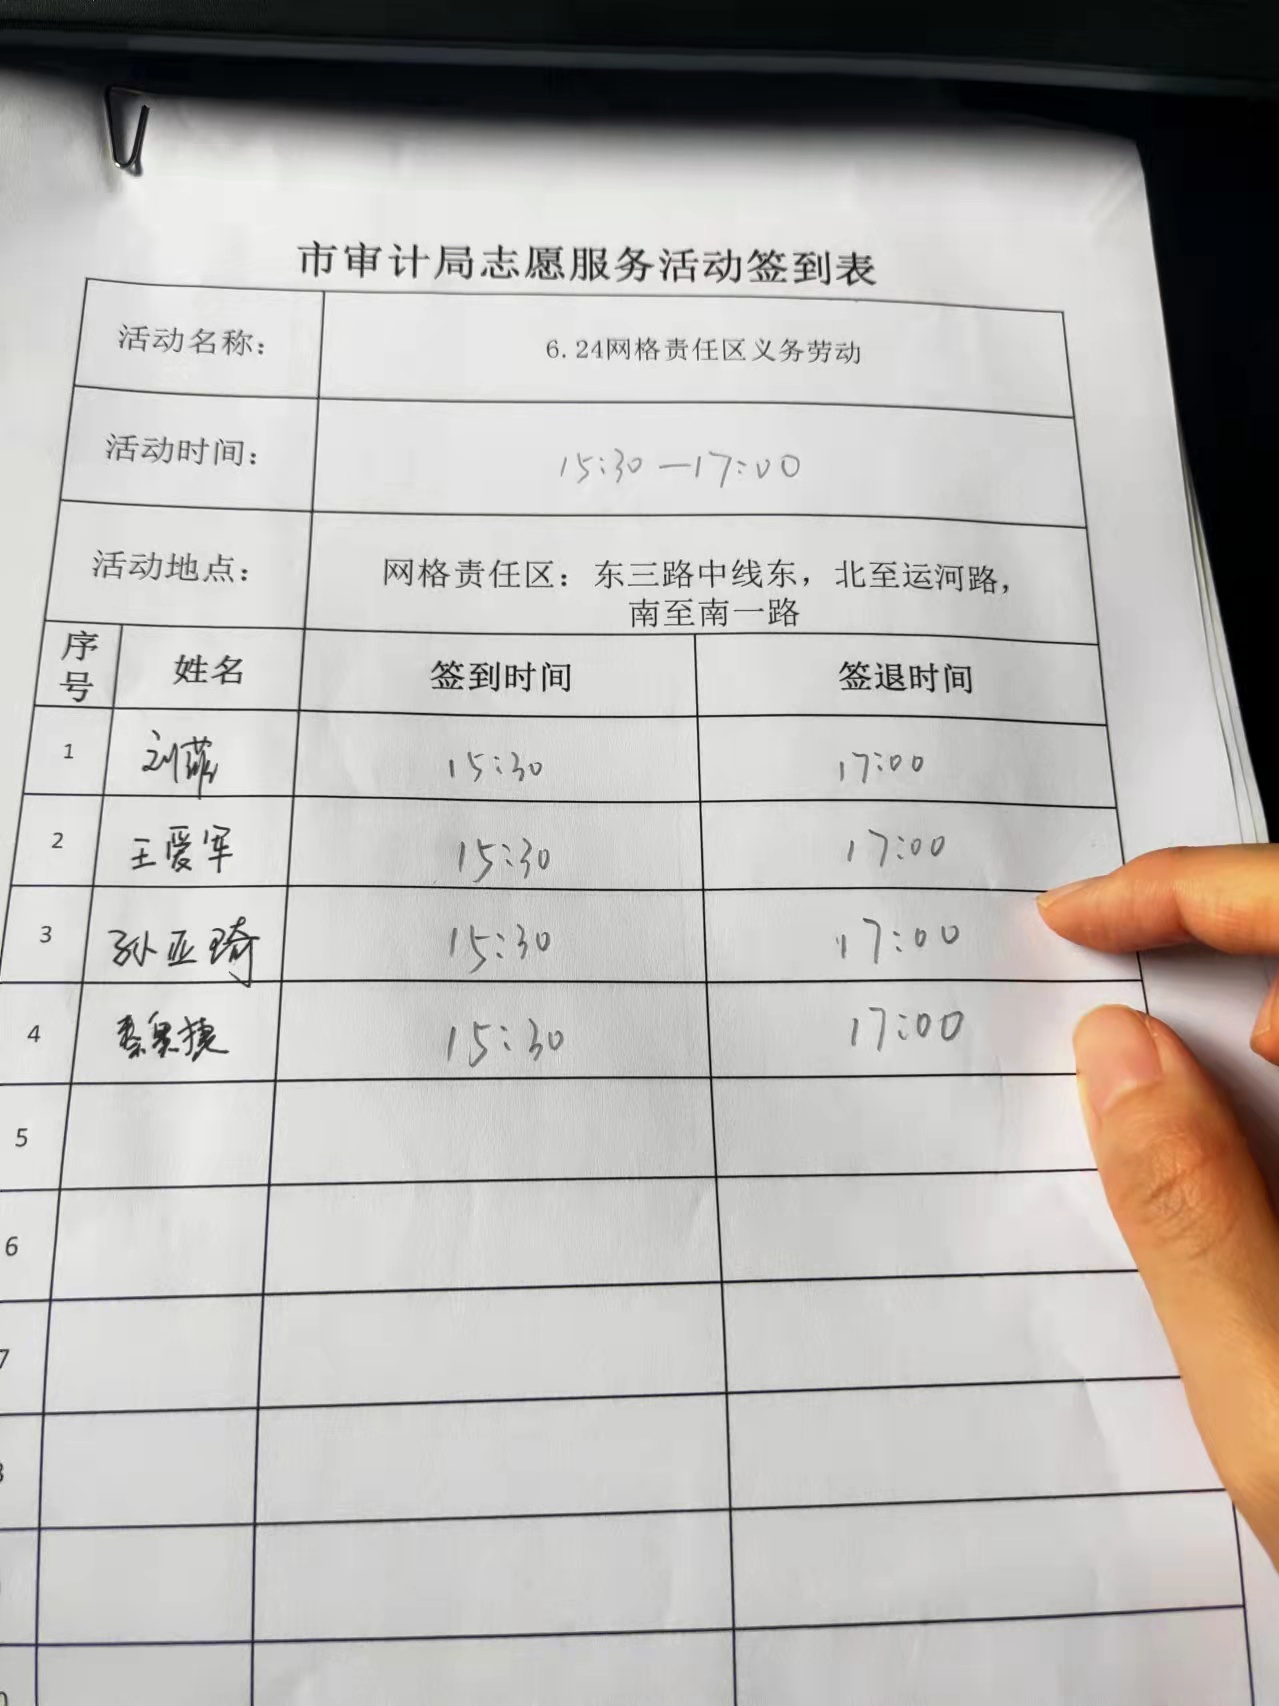 市审计局志愿服务活动签到表
活动名称： 6.24网格责任区义务劳动
活动时间： 15:30—17:00
活动地点： 网格责任区：东三路中线东，北至运河路，
南至南一路
序号 姓名 签到时间 签退时间
1 刘薇 15:30 17:00
2 王爱军 15:30 17:00
3 孙亚琦 15:30 17:00
4 15:30 17:00
5
6
7